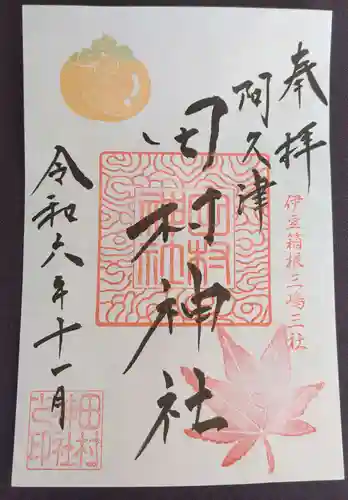 奉拝
伊豆箱根三嶋三社
阿久津
田村神社
田村神社
令和六年十一月
田村神社之印